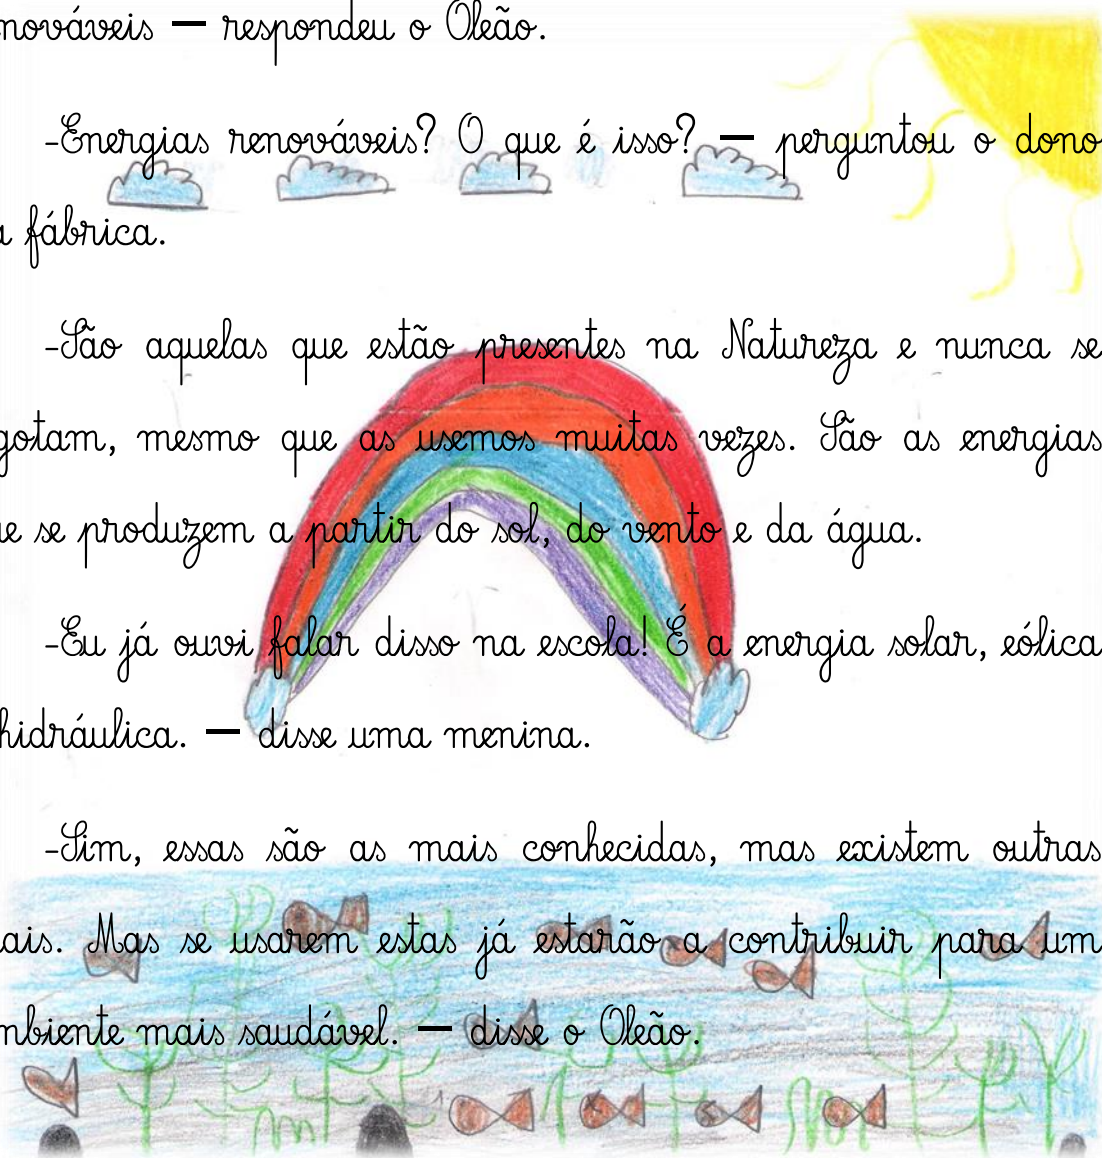 nováveis — respondeu o Oleão.
-Energias renováveis? O que é isso? — perguntou o dono
a fábrica.
-São aquelas que estão presentes na Natureza e nunca se
gotam, mesmo que as usemos muitas vezes. São as energias
ue se produzem a partir do sol, do vento e da água.
-Eu já ouvi falar disso na escola! É a energia solar, eólica
hidráulica. — disse uma menina.
-Sim, essas são as mais conhecidas, mas existem outras
ais. Mas se usarem estas já estarão a contribuir para um
mbiente mais saudável. — disse o Oleão.